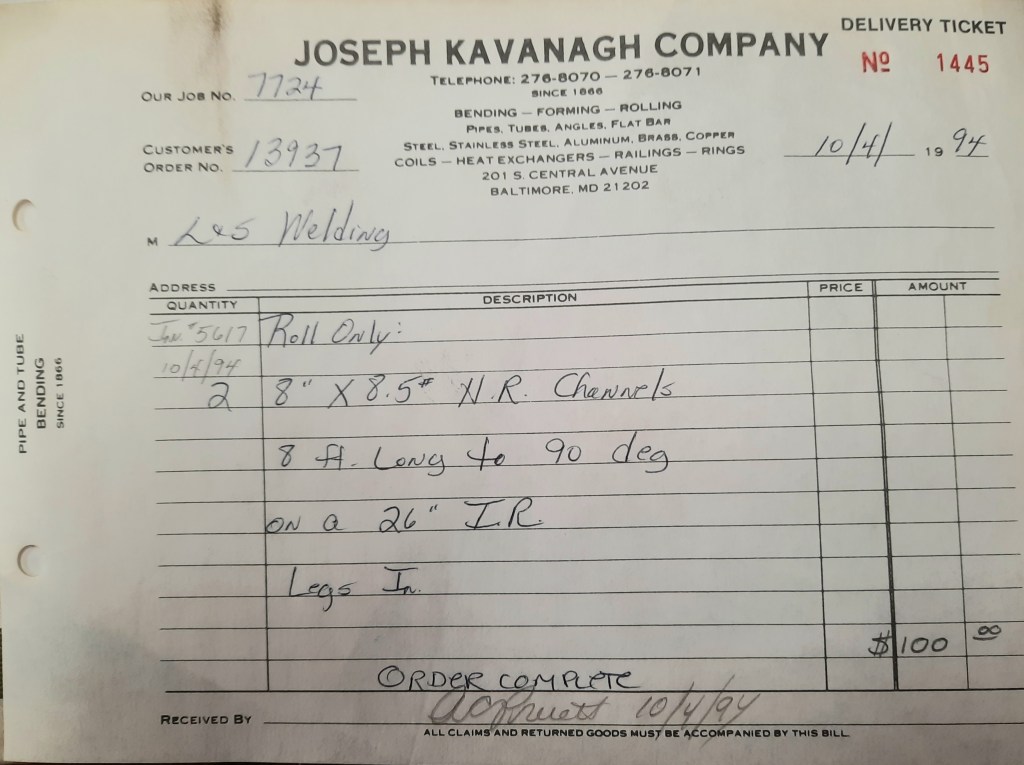 DELIVERY TICKET
JOSEPH KAVANAGH COMPANY
Nº 1445
TELEPHONE: 276-8070 — 276-8071
SINCE 1866
OUR JOB NO. 7724
BENDING — FORMING — ROLLING
PIPES, TUBES, ANGLES, FLAT BAR
STEEL, STAINLESS STEEL, ALUMINUM, BRASS, COPPER
COILS — HEAT EXCHANGERS — RAILINGS — RINGS
201 S. CENTRAL AVENUE
BALTIMORE, MD 21202
CUSTOMER'S
ORDER NO. 13937
10/4/ 19 94
M L&S Welding
ADDRESS
QUANTITY DESCRIPTION PRICE AMOUNT
Inv. #5617 Roll Only:
10/4/94
2 8" X 8.5# H.R. Channels
8 ft. Long to 90 deg
on a 26" I.R.
Legs In.
$100 00
ORDER COMPLETE
RECEIVED BY 10/4/94
ALL CLAIMS AND RETURNED GOODS MUST BE ACCOMPANIED BY THIS BILL.
PIPE AND TUBE
BENDING
SINCE 1866